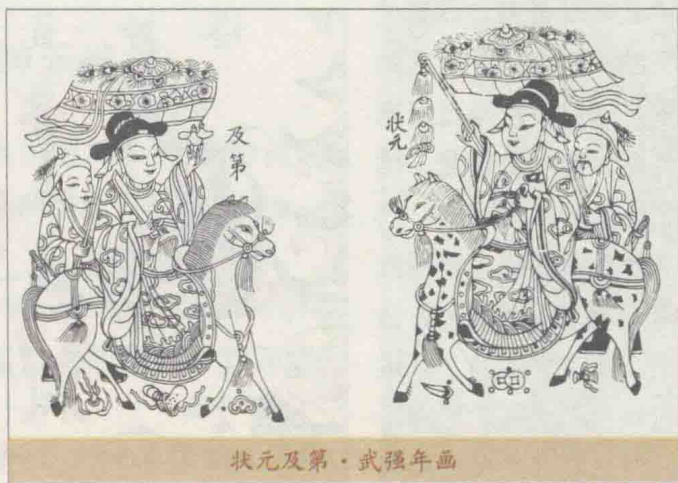 及第
状元
状元及第·武强年画